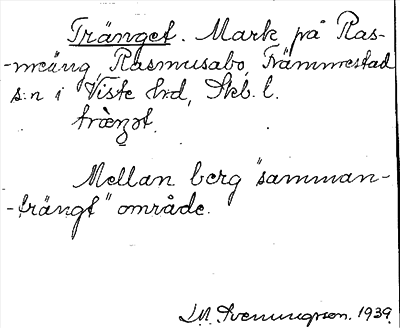 Tränget. Mark på Ras-
-mäng, Rasmusabo, Främmestad
s:n i Viste hrd, Skb. l.
Mellan berg "samman-
-trängt" område.
1939.